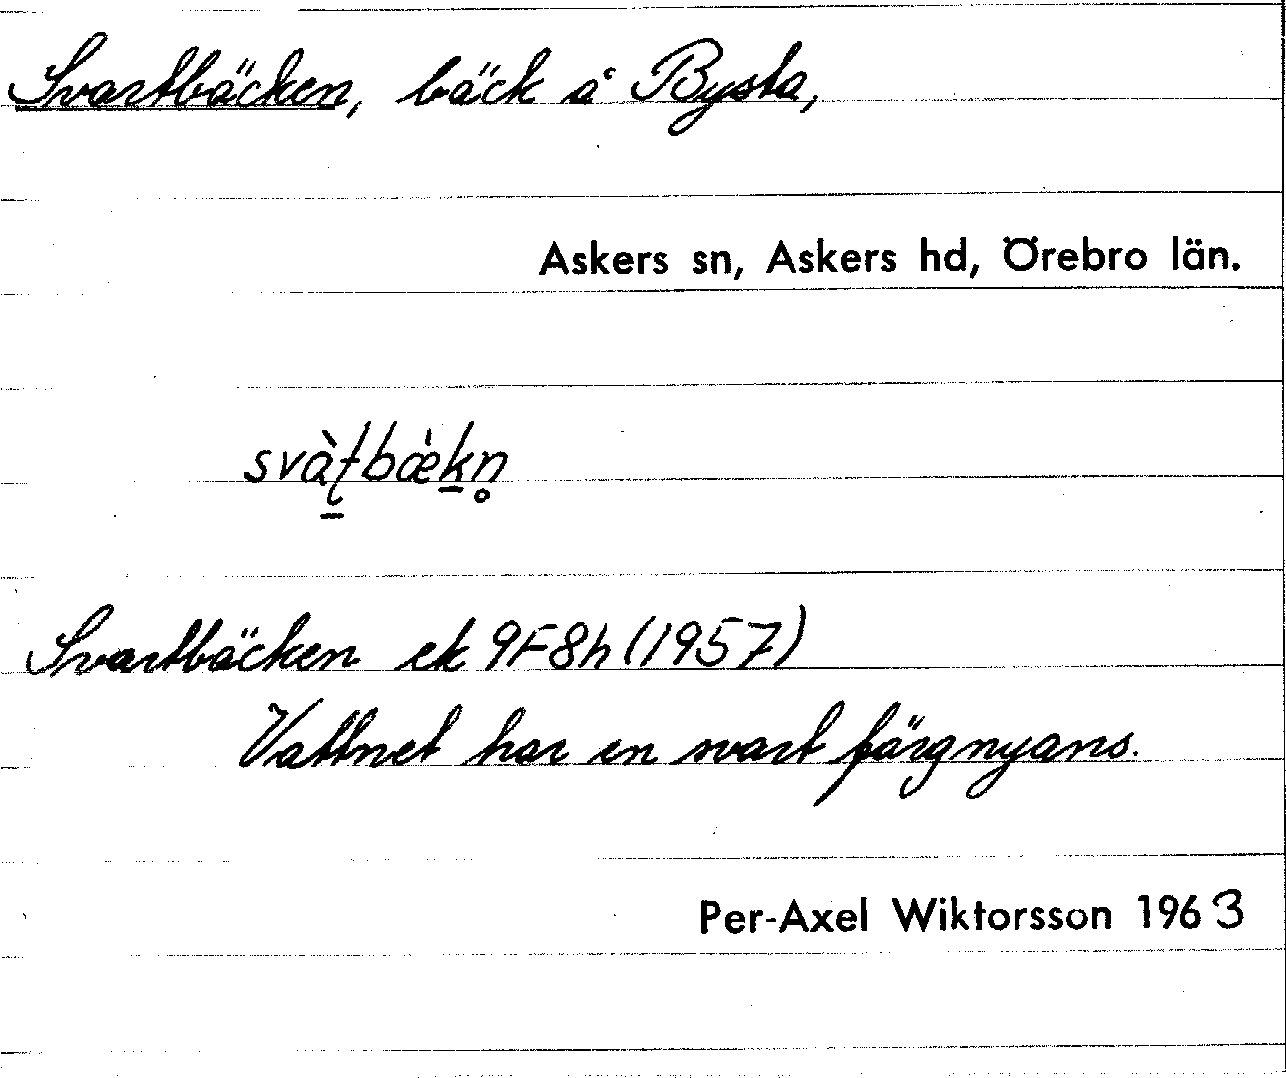 Svartbäcken, bäck å Bysta,
Askers sn, Askers hd, Örebro län.
svàʈ̠bæ̀k̠n̥
Svartbäcken ek 9F8h (1957)
Vattnet har en svart färgnyans.
Per-Axel Wiktorsson 1963